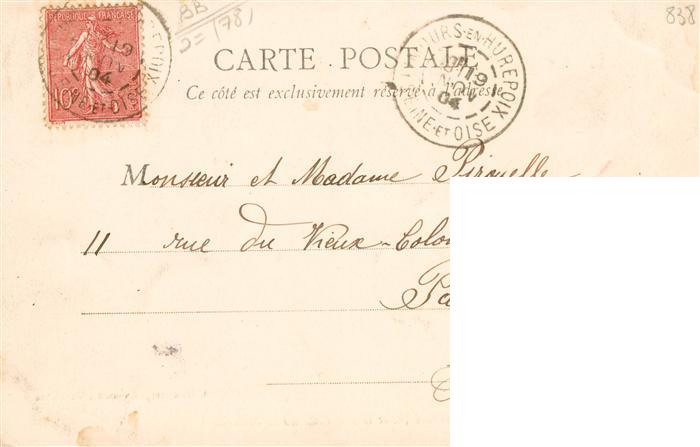 RÉPUBLIQUE FRANÇAISE
10c
BB
(78)
838
CARTE POSTALE
Ce côté est exclusivement réservé à l'adresse
URS-EN-HUREPOIX
19
NOV
04
SEINE-ET-OISE
Monsieur et Madame
11 rue du Vieux-Colo
Pa